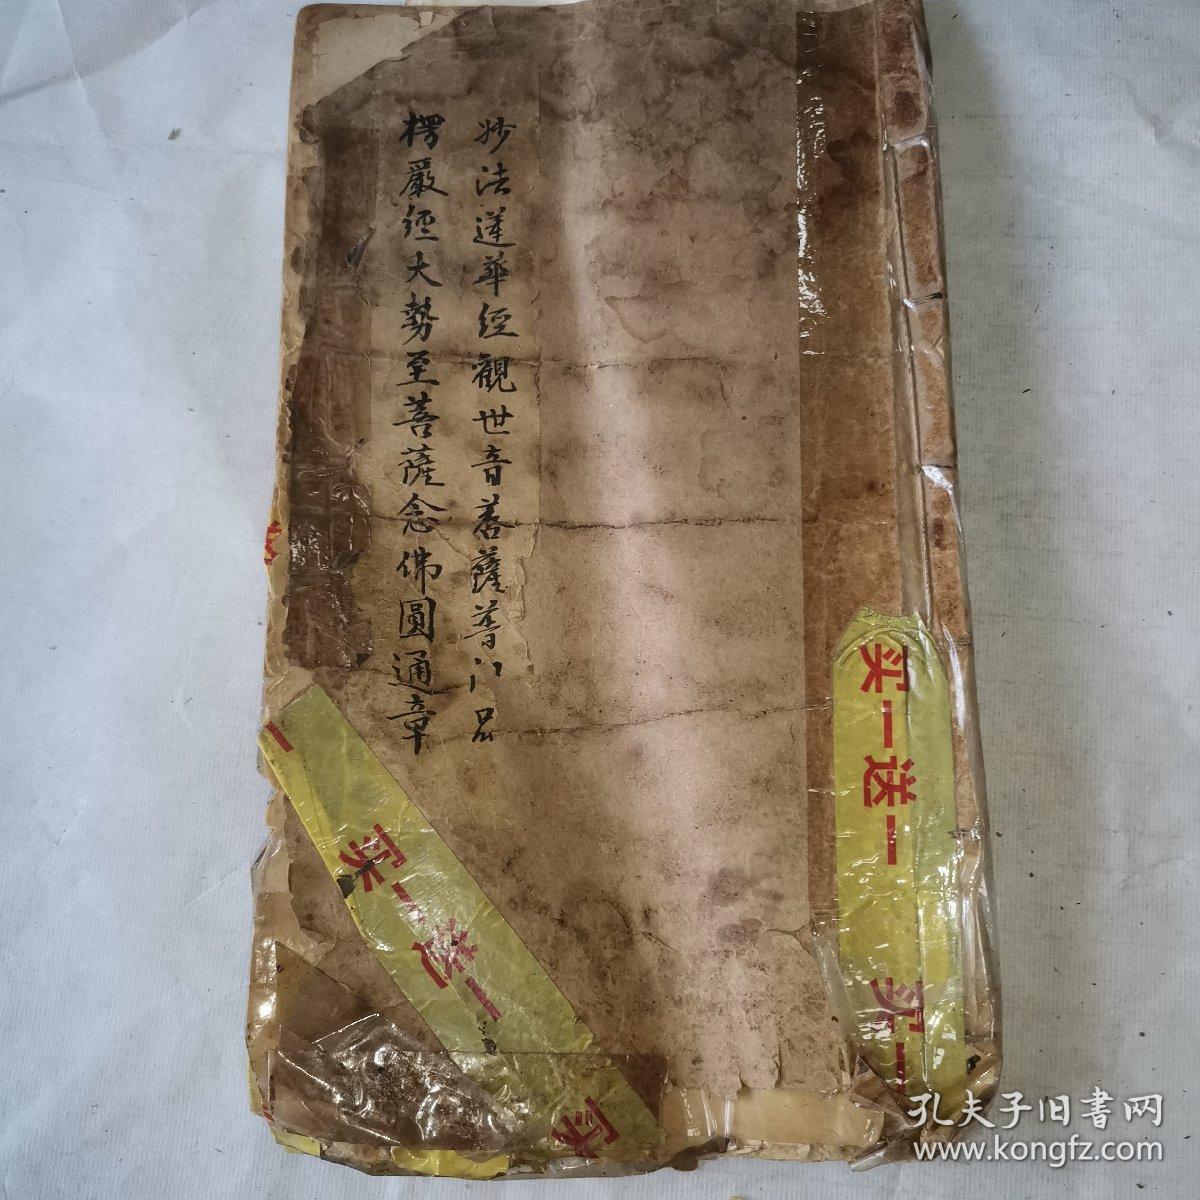 妙法蓮華經觀世音菩薩普門品
楞嚴經大勢至菩薩念佛圓通章
买一送一
买一
一
买一送一
买一
孔夫子旧書网
www.kongfz.com